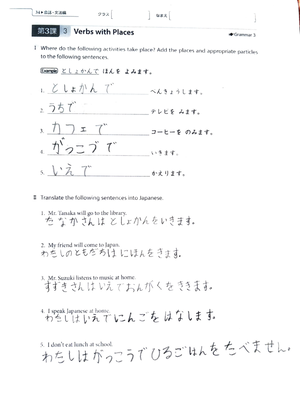 14 ▶会話・文法編
クラス
なまえ
第3課 3 Verbs with Places
➔Grammar 3
I Where do the following activities take place? Add the places and appropriate particles
to the following sentences.
Example としょかんで ほんを よみます。
1. としょかんで べんきょうします。
2. うちで テレビを みます。
3. カフェで コーヒーを のみます。
4. がっこうで いきます。
5. いえで かえります。
II Translate the following sentences into Japanese.
1. Mr. Tanaka will go to the library.
たなかさんはとしょかんをいきます。
2. My friend will come to Japan.
わたしのともだちはにほんをきます。
3. Mr. Suzuki listens to music at home.
すずきさんはいえでおんがくをききます。
4. I speak Japanese at home.
わたしはいえでにんごをはなします。
5. I don't eat lunch at school.
わたしはがっこうでひるごはんをたべません。